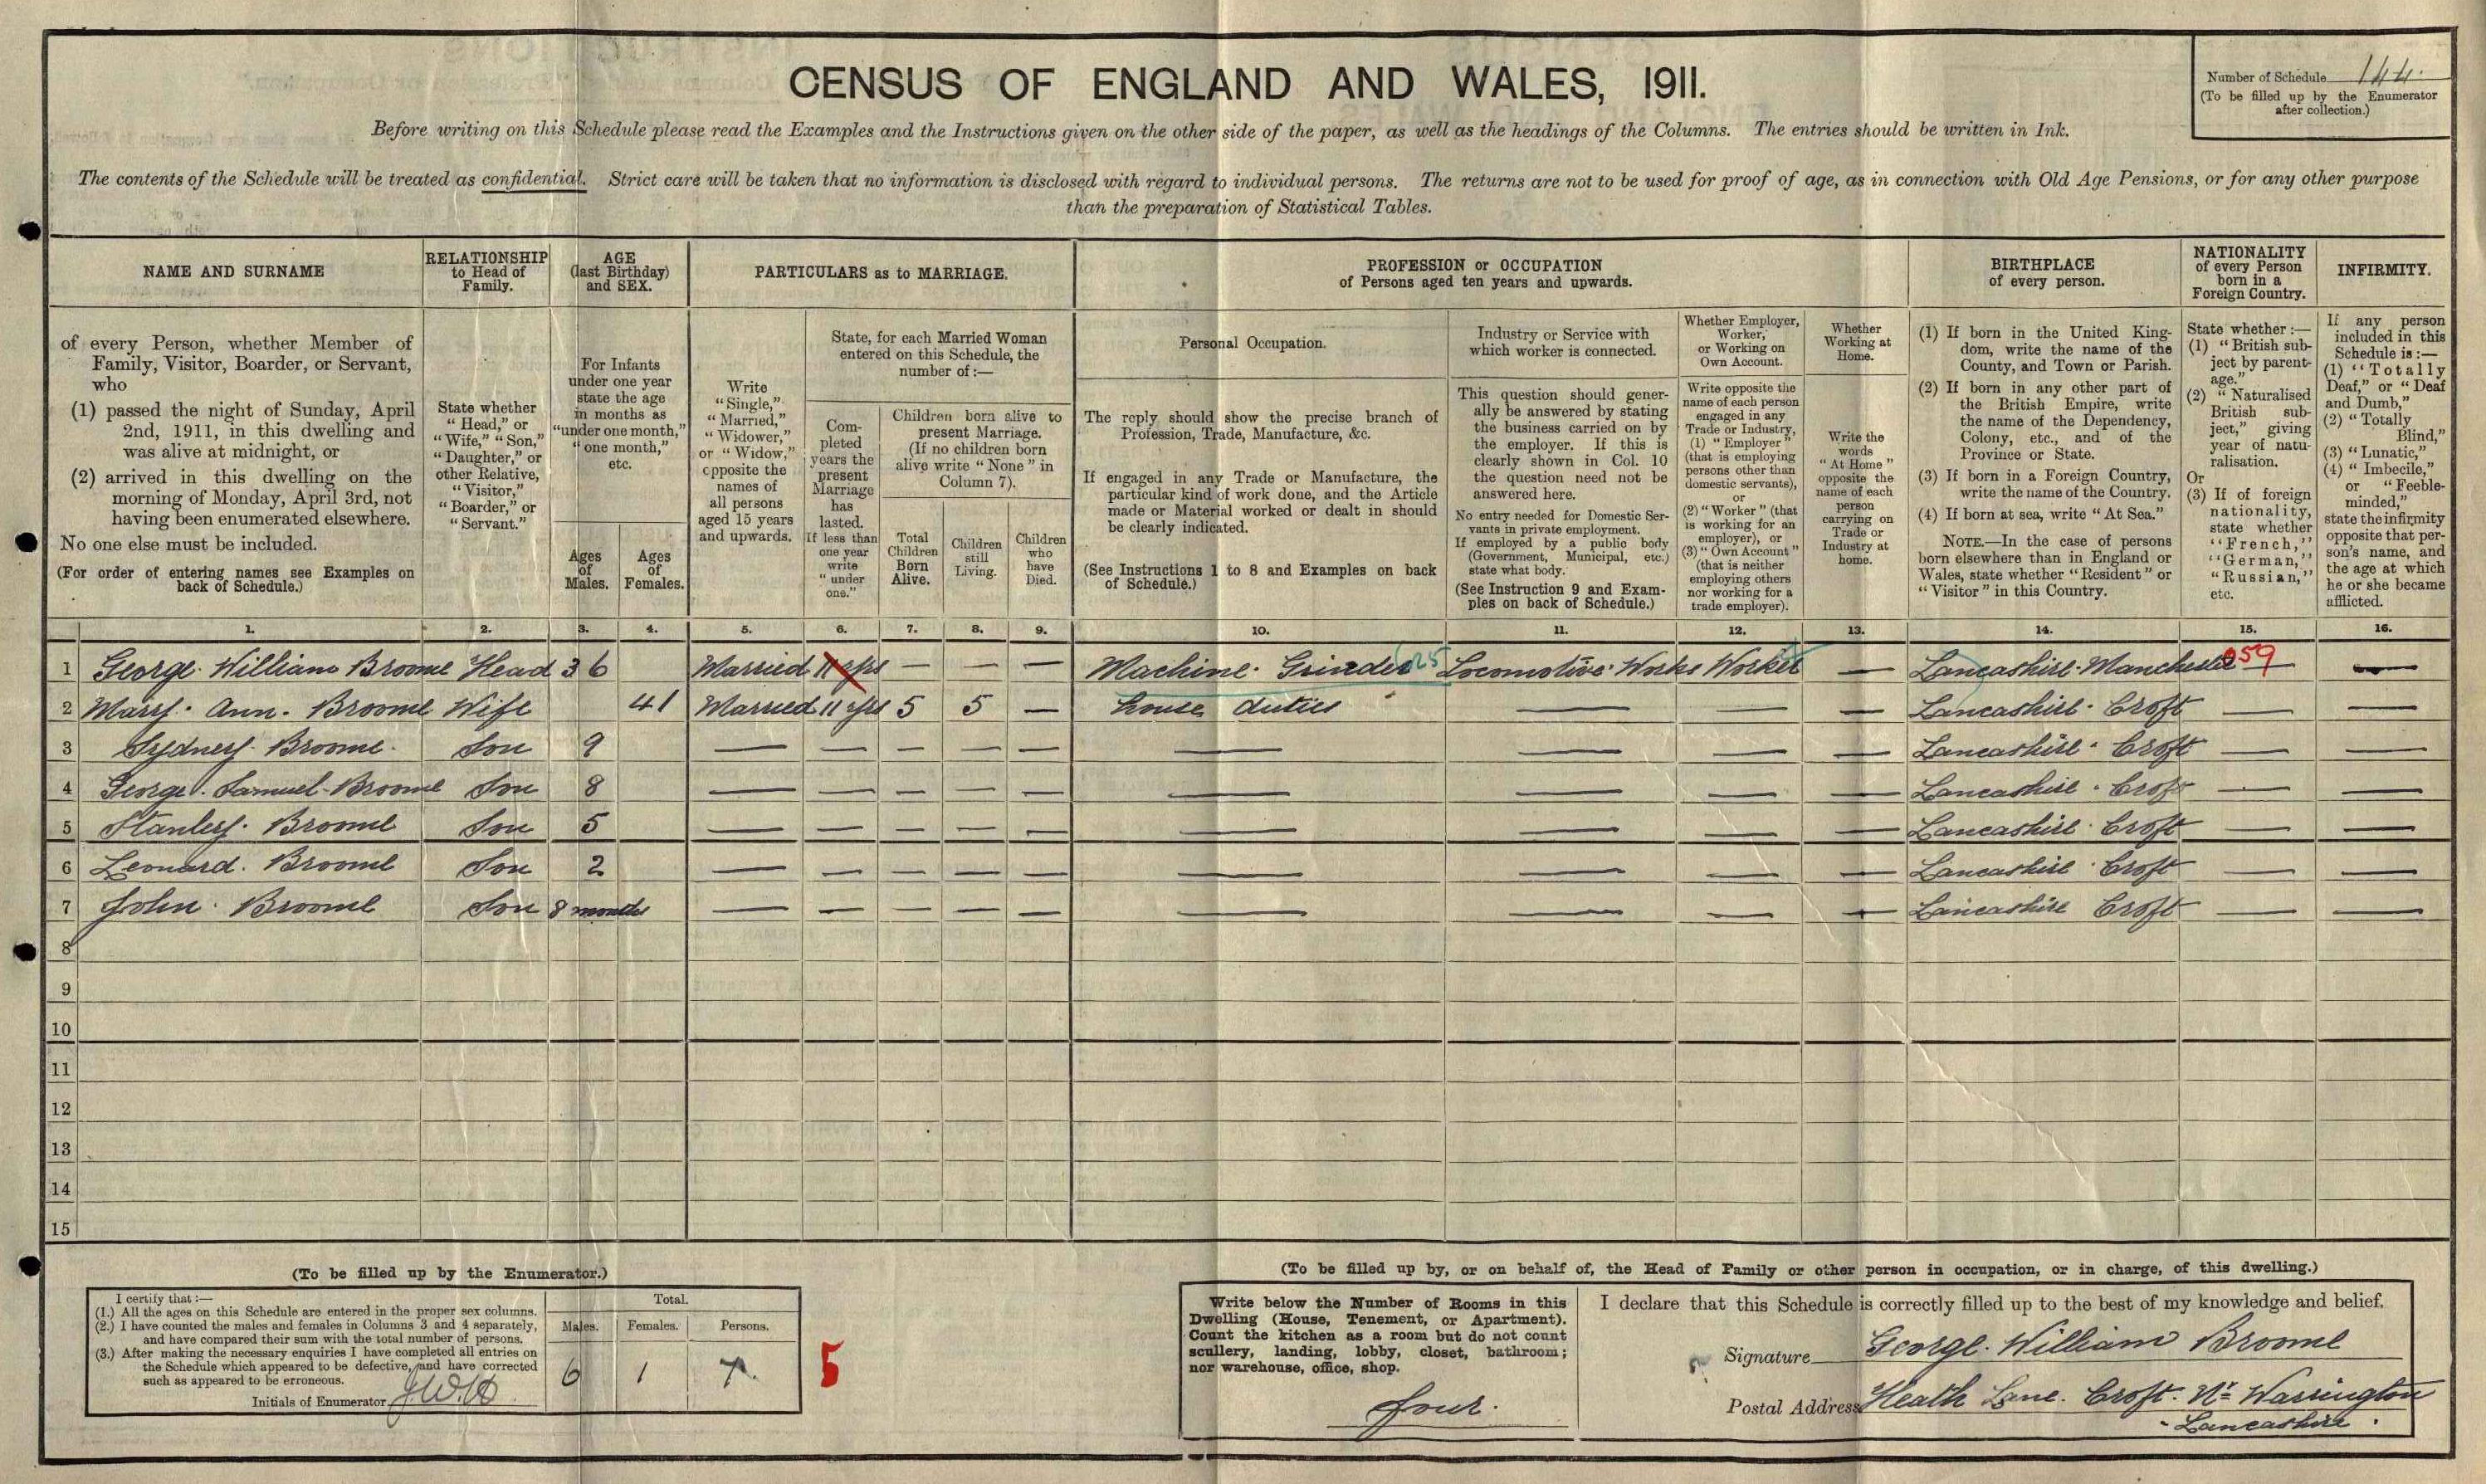 CENSUS OF ENGLAND AND WALES, 1911.
Number of Schedule 144.
(To be filled up by the Enumerator
after collection.)
Before writing on this Schedule please read the Examples and the Instructions given on the other side of the paper, as well as the headings of the Columns. The entries should be written in Ink.
The contents of the Schedule will be treated as confidential. Strict care will be taken that no information is disclosed with regard to individual persons. The returns are not to be used for proof of age, as in connection with Old Age Pensions, or for any other purpose
than the preparation of Statistical Tables.
NAME AND SURNAME
of every Person, whether Member of
Family, Visitor, Boarder, or Servant,
who
(1) passed the night of Sunday, April
2nd, 1911, in this dwelling and
was alive at midnight, or
(2) arrived in this dwelling on the
morning of Monday, April 3rd, not
having been enumerated elsewhere.
No one else must be included.
(For order of entering names see Examples on
back of Schedule.)
RELATIONSHIP
to Head of
Family.
State whether
"Head," or
"Wife," "Son,"
"Daughter," or
other Relative,
"Visitor,"
"Boarder," or
"Servant."
AGE
(last Birthday)
and SEX.
For Infants
under one year
state the age
in months as
"under one month,"
"one month,"
etc.
Ages
of
Males.
Ages
of
Females.
PARTICULARS as to MARRIAGE.
Write
"Single,"
"Married,"
"Widower,"
or "Widow,"
opposite the
names of
all persons
aged 15 years
and upwards.
State, for each Married Woman
entered on this Schedule, the
number of:—
Com-
pleted
years the
present
Marriage
has
lasted.
If less than
one year
write
"under
one."
Children born alive to
present Marriage.
(If no children born
alive write "None" in
Column 7).
Total
Children
Born
Alive.
Children
still
Living.
Children
who
have
Died.
PROFESSION or OCCUPATION
of Persons aged ten years and upwards.
Personal Occupation.
The reply should show the precise branch of
Profession, Trade, Manufacture, &c.
If engaged in any Trade or Manufacture, the
particular kind of work done, and the Article
made or Material worked or dealt in should
be clearly indicated.
(See Instructions 1 to 8 and Examples on back
of Schedule.)
Industry or Service with
which worker is connected.
This question should gener-
ally be answered by stating
the business carried on by
the employer. If this is
clearly shown in Col. 10
the question need not be
answered here.
No entry needed for Domestic Ser-
vants in private employment.
If employed by a public body
(Government, Municipal, etc.)
state what body.
(See Instruction 9 and Exam-
ples on back of Schedule.)
Whether Employer,
Worker,
or Working on
Own Account.
Write opposite the
name of each person
engaged in any
Trade or Industry,
(1) "Employer"
(that is employing
persons other than
domestic servants),
or
(2) "Worker" (that
is working for an
employer), or
(3) "Own Account"
(that is neither
employing others
nor working for a
trade employer).
Whether
Working at
Home.
Write the
words
"At Home"
opposite the
name of each
person
carrying on
Trade or
Industry at
home.
BIRTHPLACE
of every person.
(1) If born in the United King-
dom, write the name of the
County, and Town or Parish.
(2) If born in any other part of
the British Empire, write
the name of the Dependency,
Colony, etc., and of the
Province or State.
(3) If born in a Foreign Country,
write the name of the Country.
(4) If born at sea, write "At Sea."
NOTE.—In the case of persons
born elsewhere than in England or
Wales, state whether "Resident" or
"Visitor" in this Country.
NATIONALITY
of every Person
born in a
Foreign Country.
State whether:—
(1) "British sub-
ject by parent-
age."
(2) "Naturalised
British sub-
ject," giving
year of natu-
ralisation.
Or
(3) If of foreign
nationality,
state whether
"French,"
"German,"
"Russian,"
etc.
INFIRMITY.
If any person
included in this
Schedule is:—
(1) "Totally
Deaf," or "Deaf
and Dumb,"
(2) "Totally
Blind,"
(3) "Lunatic,"
(4) "Imbecile,"
or "Feeble-
minded,"
state the infirmity
opposite that per-
son's name, and
the age at which
he or she became
afflicted.
1. 2. 3. 4. 5. 6. 7. 8. 9. 10. 11. 12. 13. 14. 15. 16.
1 George William Broome Head 36 Married 11 yrs — — — Machine Grinder 625 Locomotive Works Worker — Lancashire Manchester 059 — —
2 Mary Ann Broome Wife 41 Married 11 yrs 5 5 — house duties — — — Lancashire Croft — —
3 Sydney Broome Son 9 — — — — — — — — — Lancashire Croft — —
4 George Samuel Broome Son 8 — — — — — — — — — Lancashire Croft — —
5 Stanley Broome Son 5 — — — — — — — — — Lancashire Croft — —
6 Leonard Broome Son 2 — — — — — — — — — Lancashire Croft — —
7 John Broome Son 8 months — — — — — — — — — Lancashire Croft — —
8
9
10
11
12
13
14
15
(To be filled up by the Enumerator.)
I certify that:—
(1.) All the ages on this Schedule are entered in the proper sex columns.
(2.) I have counted the males and females in Columns 3 and 4 separately,
and have compared their sum with the total number of persons.
(3.) After making the necessary enquiries I have completed all entries on
the Schedule which appeared to be defective, and have corrected
such as appeared to be erroneous.
Initials of Enumerator J.W.H
Total.
Males. Females. Persons.
6 1 7.
5
(To be filled up by, or on behalf of, the Head of Family or other person in occupation, or in charge, of this dwelling.)
Write below the Number of Rooms in this
Dwelling (House, Tenement, or Apartment).
Count the kitchen as a room but do not count
scullery, landing, lobby, closet, bathroom;
nor warehouse, office, shop.
four.
I declare that this Schedule is correctly filled up to the best of my knowledge and belief.
Signature George William Broome
Postal Address Heath Lane. Croft. Nr Warrington
Lancashire.